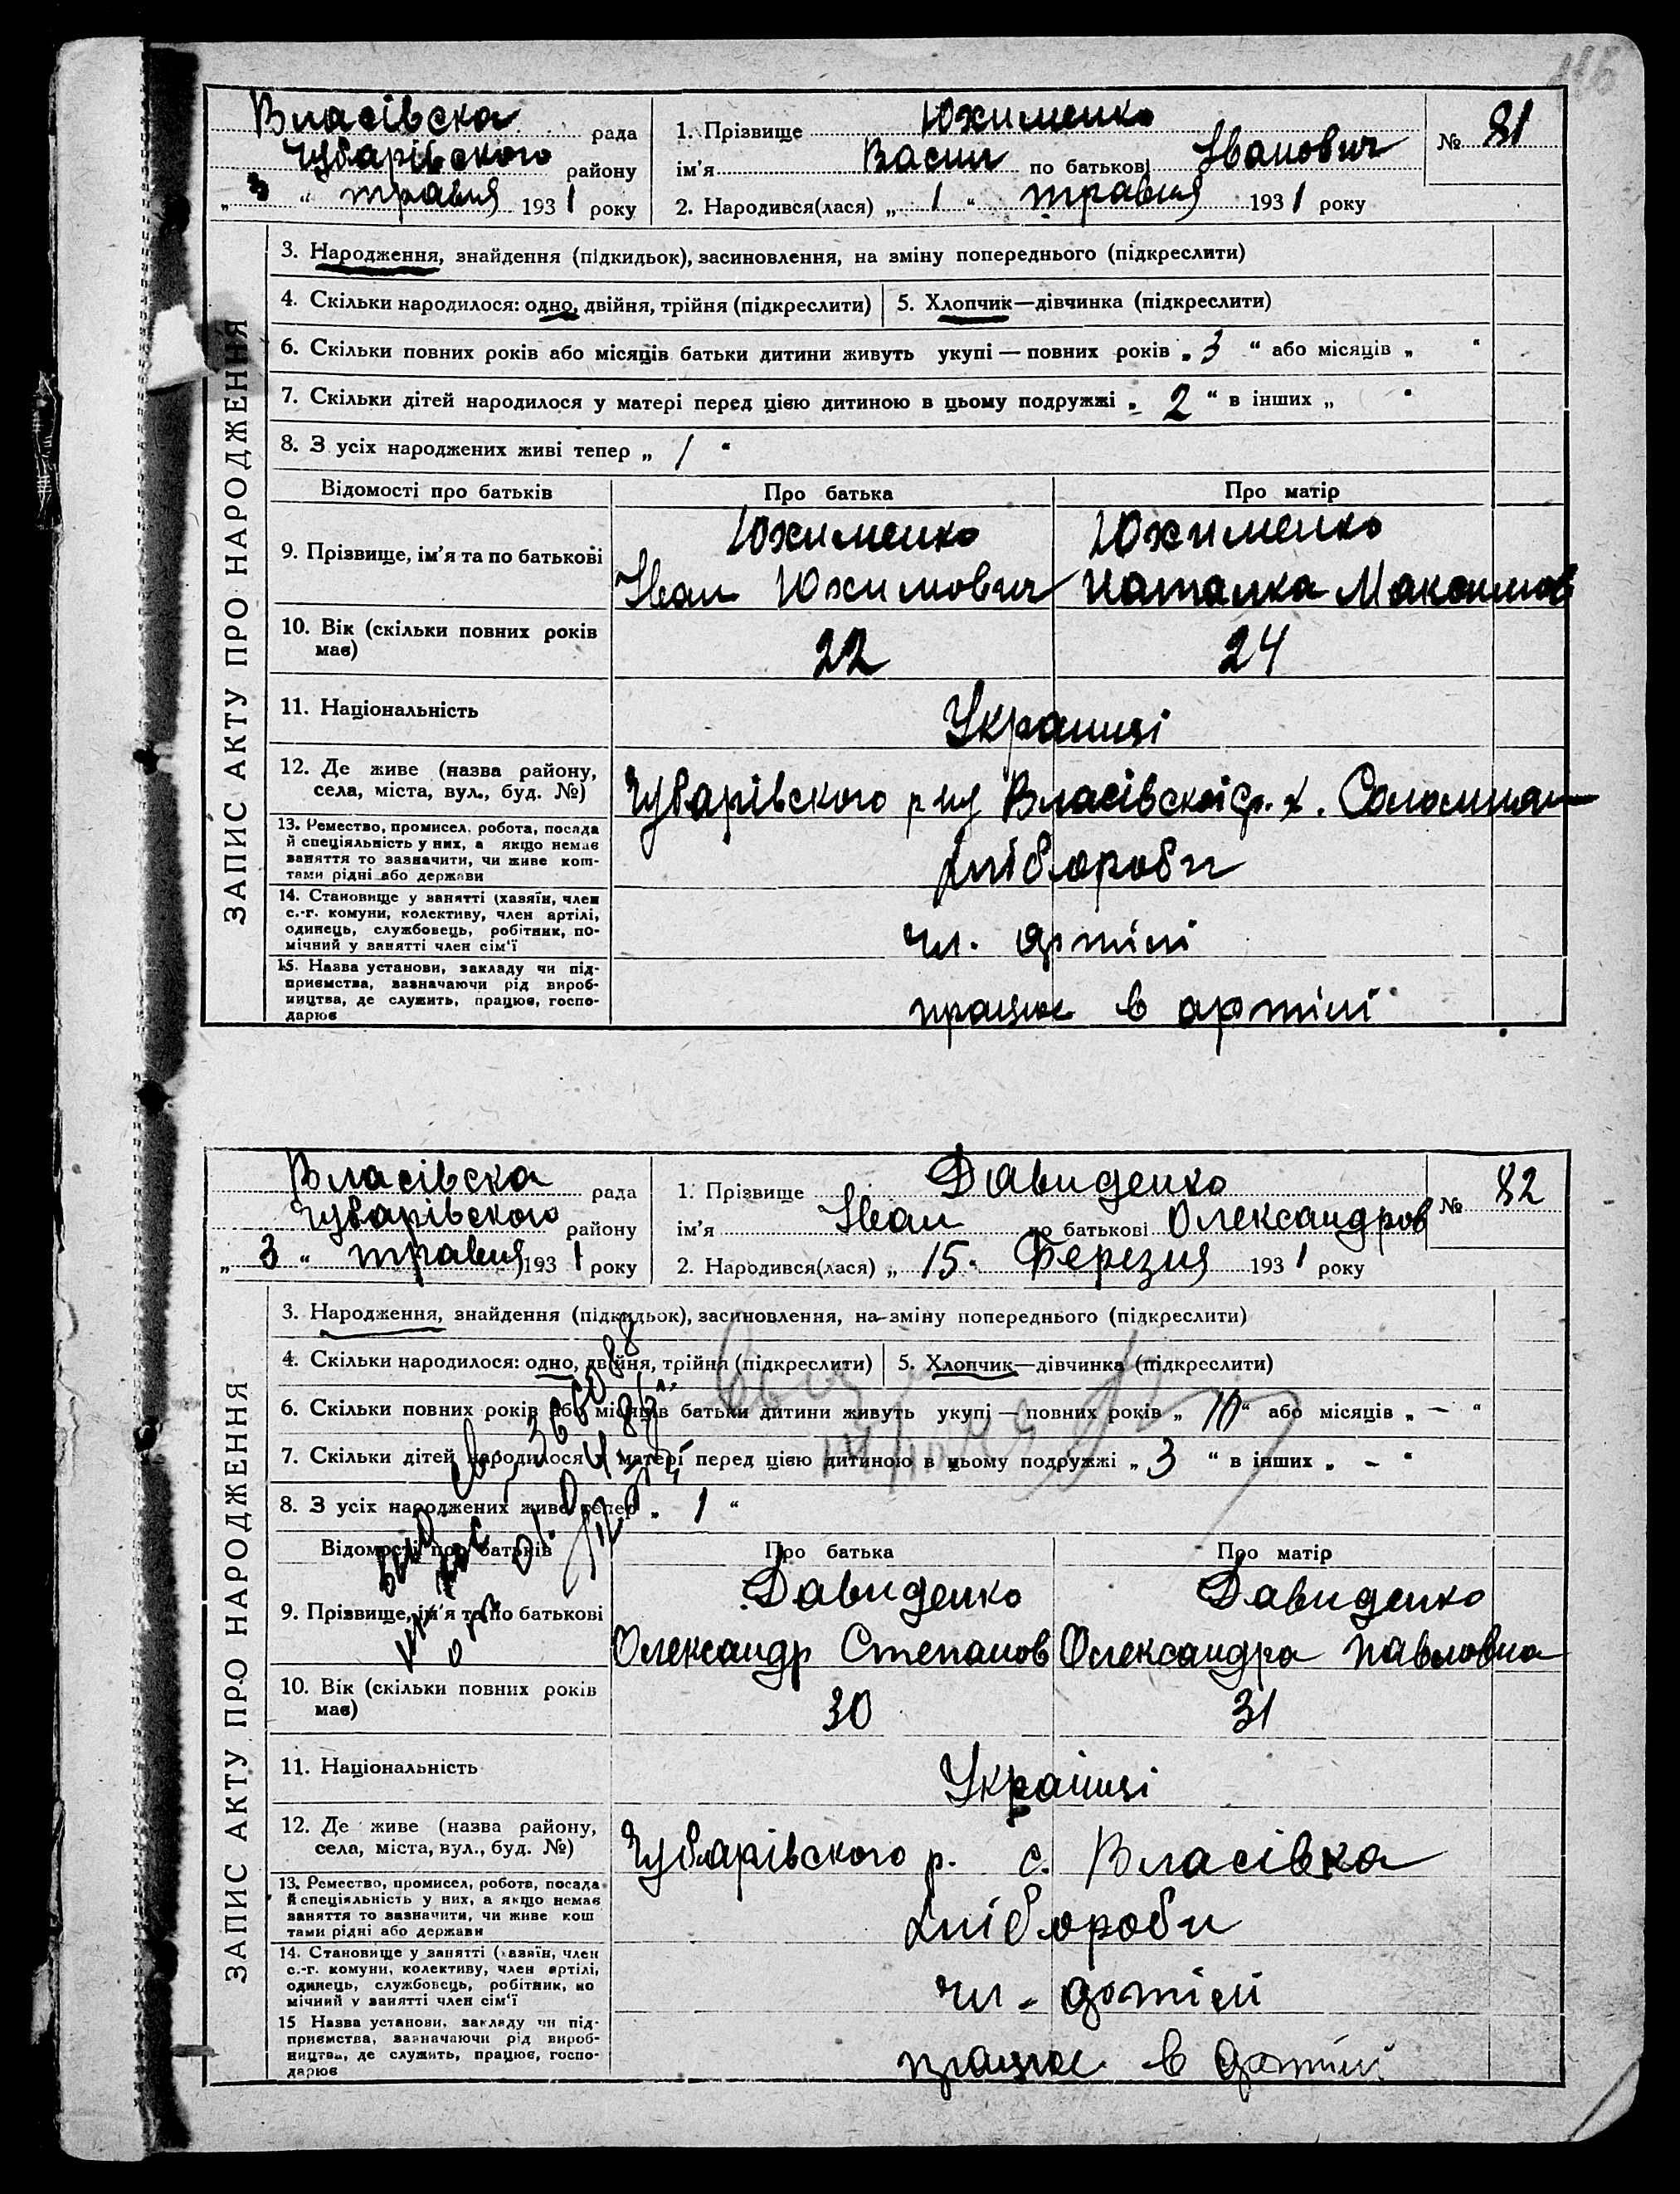 Власівска рада
Чубарівського району
„ 3 “ травня 1931 року
1. Прізвище Юхименко
ім’я Васил по батькові Іванович
2. Народився(лася) „ 1 “ травня 1931 року
№ 81
ЗАПИС АКТУ ПРО НАРОДЖЕННЯ
3. Народження, знайдення (підкидьок), засиновлення, на зміну попереднього (підкреслити)
4. Скільки народилося: одно, двійня, трійня (підкреслити) 5. Хлопчик—дівчинка (підкреслити)
6. Скільки повних років або місяців батьки дитини живуть укупі — повних років „ 3 “ або місяців „ “
7. Скільки дітей народилося у матері перед цією дитиною в цьому подружжі „ 2 “ в інших „ “
8. З усіх народжених живі тепер „ 1 “
Відомості про батьків Про батька Про матір
9. Прізвище, ім’я та по батькові
Юхименко Юхименко
Іван Юхимович Наталка Максимов
10. Вік (скільки повних років
має)
22 24
11. Національність
Українці
12. Де живе (назва району,
села, міста, вул., буд. №)
Чубарівского р-ну Власівскої с.р. х. Соломиян
13. Ремество, промисел, робота, посада
й спеціяльність у них, а якщо немає
заняття то зазначити, чи живе кош-
тами рідні або держави
хлібороби
14. Становище у занятті (хазяїн, член
с.-г. комуни, колективу, член артілі,
одинець, службовець, робітник, по-
мічний у занятті член сім’ї
чл. артілі
15. Назва установи, закладу чи під-
приємства, зазначаючи рід вироб-
ництва, де служить, працює, госпо-
дарює
працює в артілі
Власівска рада
Чубарівского району
„ 3 “ травня 1931 року
1. Прізвище Давиденко
ім’я Іван по батькові Олександров
2. Народився(лася) „ 15 “ Березня 1931 року
№ 82
ЗАПИС АКТУ ПРО НАРОДЖЕННЯ
3. Народження, знайдення (підкидьок), засиновлення, на зміну попереднього (підкреслити)
4. Скільки народилося: одно, двійня, трійня (підкреслити) 5. Хлопчик—дівчинка (підкреслити)
6. Скільки повних років або місяців батьки дитини живуть укупі — повних років „ 10 “ або місяців „ — “
7. Скільки дітей народилося у матері перед цією дитиною в цьому подружжі „ 3 “ в інших „ - “
8. З усіх народжених живі тепер „ 1 “
Відомості про батьків Про батька Про матір
9. Прізвище, ім’я та по батькові
Давиденко Давиденко
Олександр Степанов Олександра Павловна
10. Вік (скільки повних років
має)
30 31
11. Національність
Українці
12. Де живе (назва району,
села, міста, вул., буд. №)
Чубарівского р. с. Власівка
13. Ремество, промисел, робота, посада
й спеціяльність у них, а якщо немає
заняття то зазначити, чи живе кош
тами рідні або держави
хлібороби
14. Становище у занятті (хазяїн, член
с.-г. комуни, колективу, член артілі,
одинець, службовець, робітник, по
мічний у занятті член сім’ї
чл. артілі
15 Назва установи, закладу чи під-
приємства, зазначаючи рід вироб-
ництва, де служить, працює, госпо-
дарює
працює в артілі